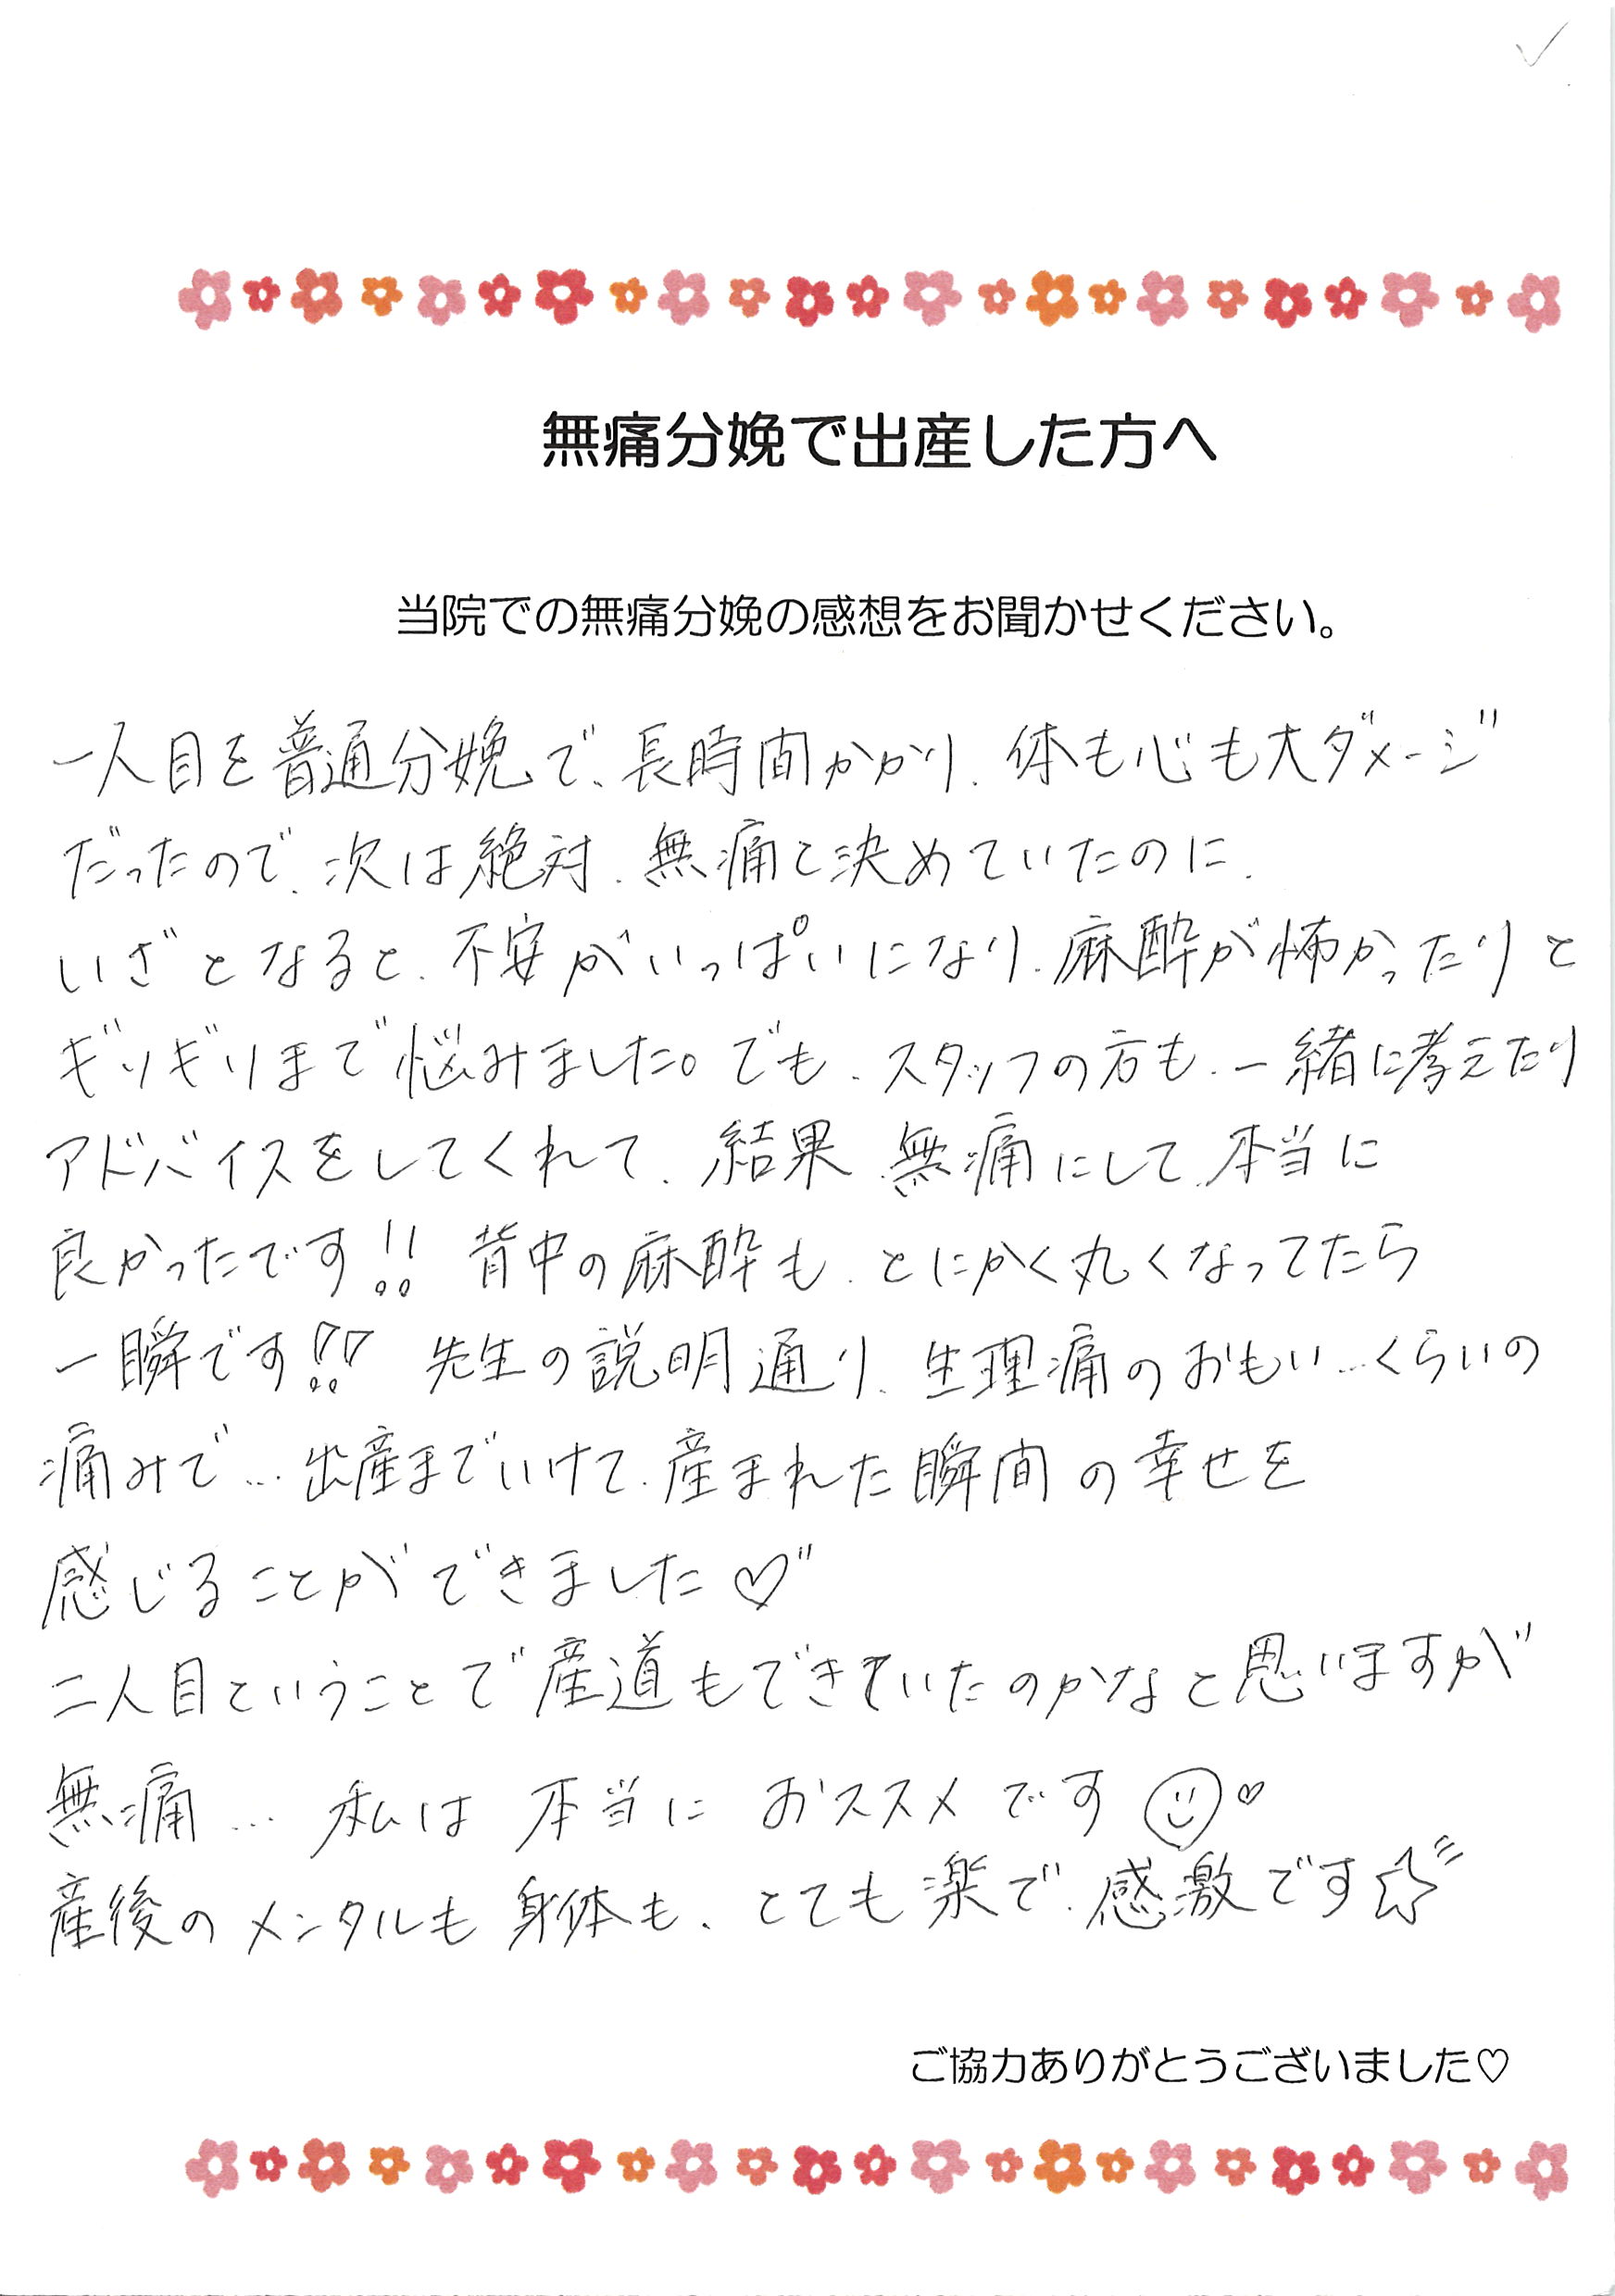 無痛分娩で出産した方へ
当院での無痛分娩の感想をお聞かせください。
一人目を普通分娩で、長時間かかり、体も心も大ダメージ
だったので、次は絶対、無痛と決めていたのに、
いざとなると、不安がいっぱいになり、麻酔が怖かったりと
ギリギリまで悩みました。でも、スタッフの方も、一緒に考えたり
アドバイスをしてくれて、結果、無痛にして、本当に
良かったです!! 背中の麻酔も、とにかく丸くなってたら
一瞬です!! 先生の説明通り、生理痛のおもい…くらいの
痛みで…出産までいけて、産まれた瞬間の幸せを
感じることができました♡"
二人目ということで産道もできていたのかなと思いますが
無痛… 私は 本当に おススメです☺♡
産後のメンタルも 身体も、とても楽で、感激です☆
ご協力ありがとうございました♡